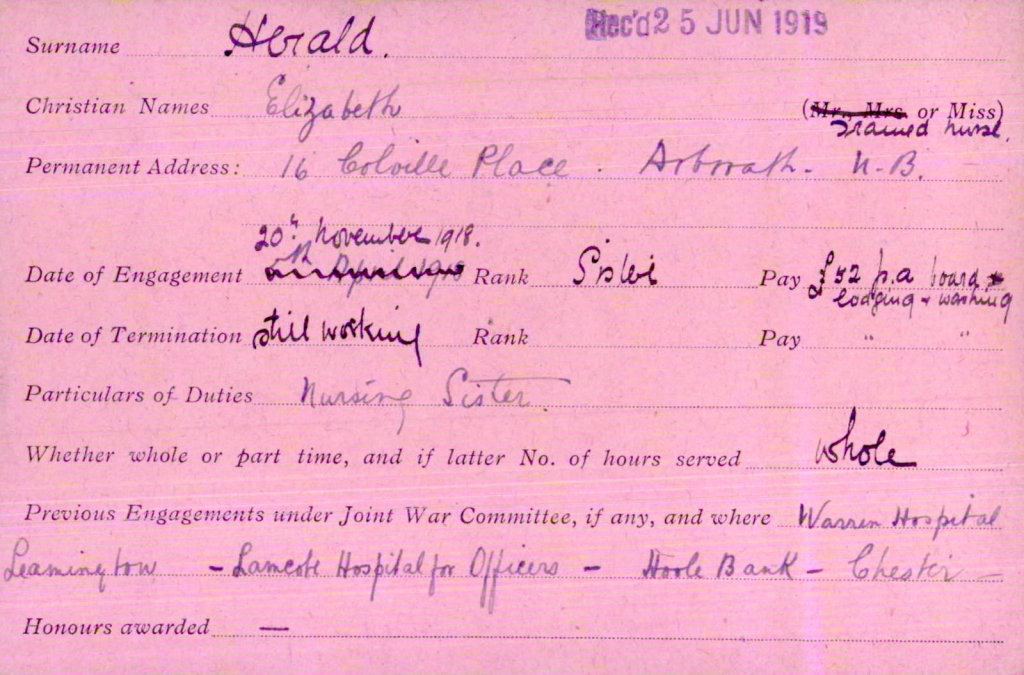 Rec'd 25 JUN 1919
Surname Herald.
Christian Names Elizabeth (Mr., Mrs. or Miss)
trained nurse.
Permanent Address: 16 Colville Place. Arbroath. N.B.
20th November 1918.
Date of Engagement April Rank Sister Pay £52 p.a board &
lodging + washing
Date of Termination still working Rank Pay " "
Particulars of Duties Nursing Sister.
Whether whole or part time, and if latter No. of hours served whole
Previous Engagements under Joint War Committee, if any, and where Warren Hospital
Leamington - Lamcote Hospital for Officers - Hoole Bank - Chester -
Honours awarded —